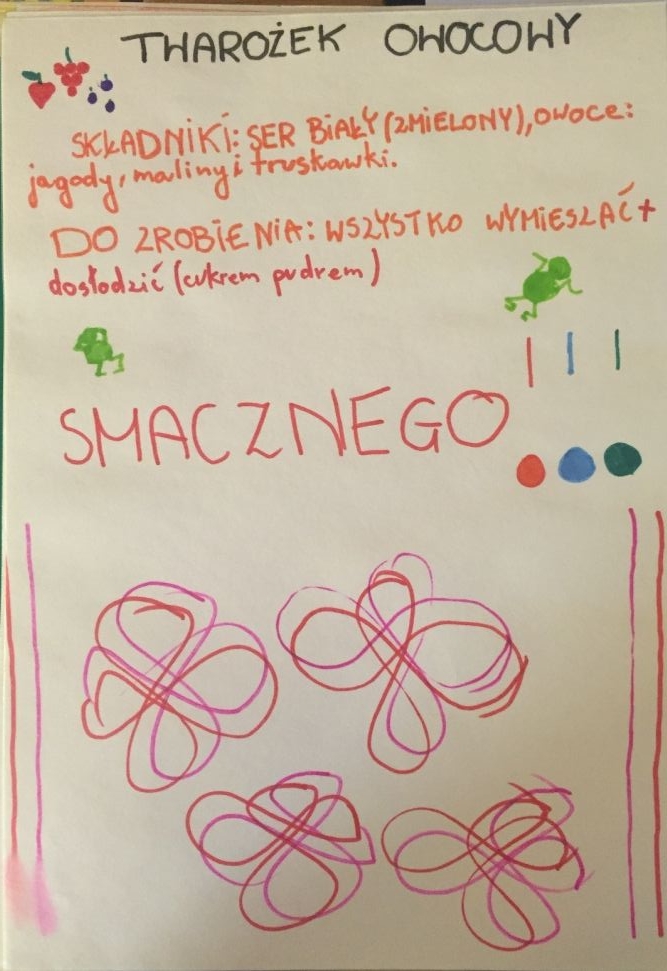 TWAROŻEK OWOCOWY
SKŁADNIKI: SER BIAŁY (ZMIELONY), OWOCE:
jagody, maliny i truskawki.
DO ZROBIENIA: WSZYSTKO WYMIESZAĆ +
dosłodzić (cukrem pudrem)
SMACZNEGO!!!